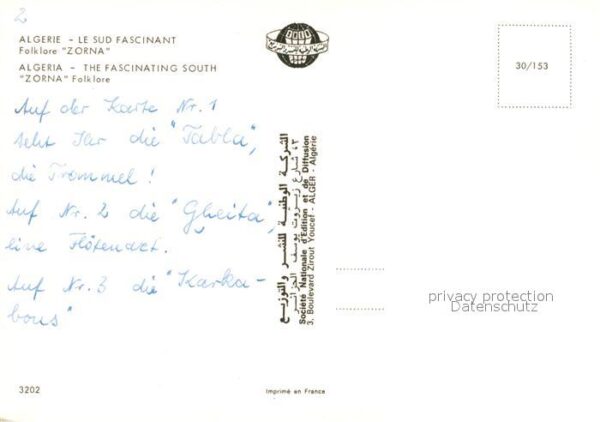 2
ALGERIE - LE SUD FASCINANT
Folklore "ZORNA"
ALGERIA - THE FASCINATING SOUTH
"ZORNA" Folklore
Auf der Karte Nr. 1
seht Ihr die "Tabla",
die Trommel!
Auf Nr. 2 die "Gheita",
eine Flötenart.
Auf Nr. 3 die "Karka-
bous"
3202
الشركة الوطنية للنشر والتوزيع
٣، شارع زيروت يوسف الجزائر
Société Nationale d'Edition et de Diffusion
3, Boulevard Zirout Youcef - ALGER - Algérie
Imprimé en France
30/153
privacy protection
Datenschutz